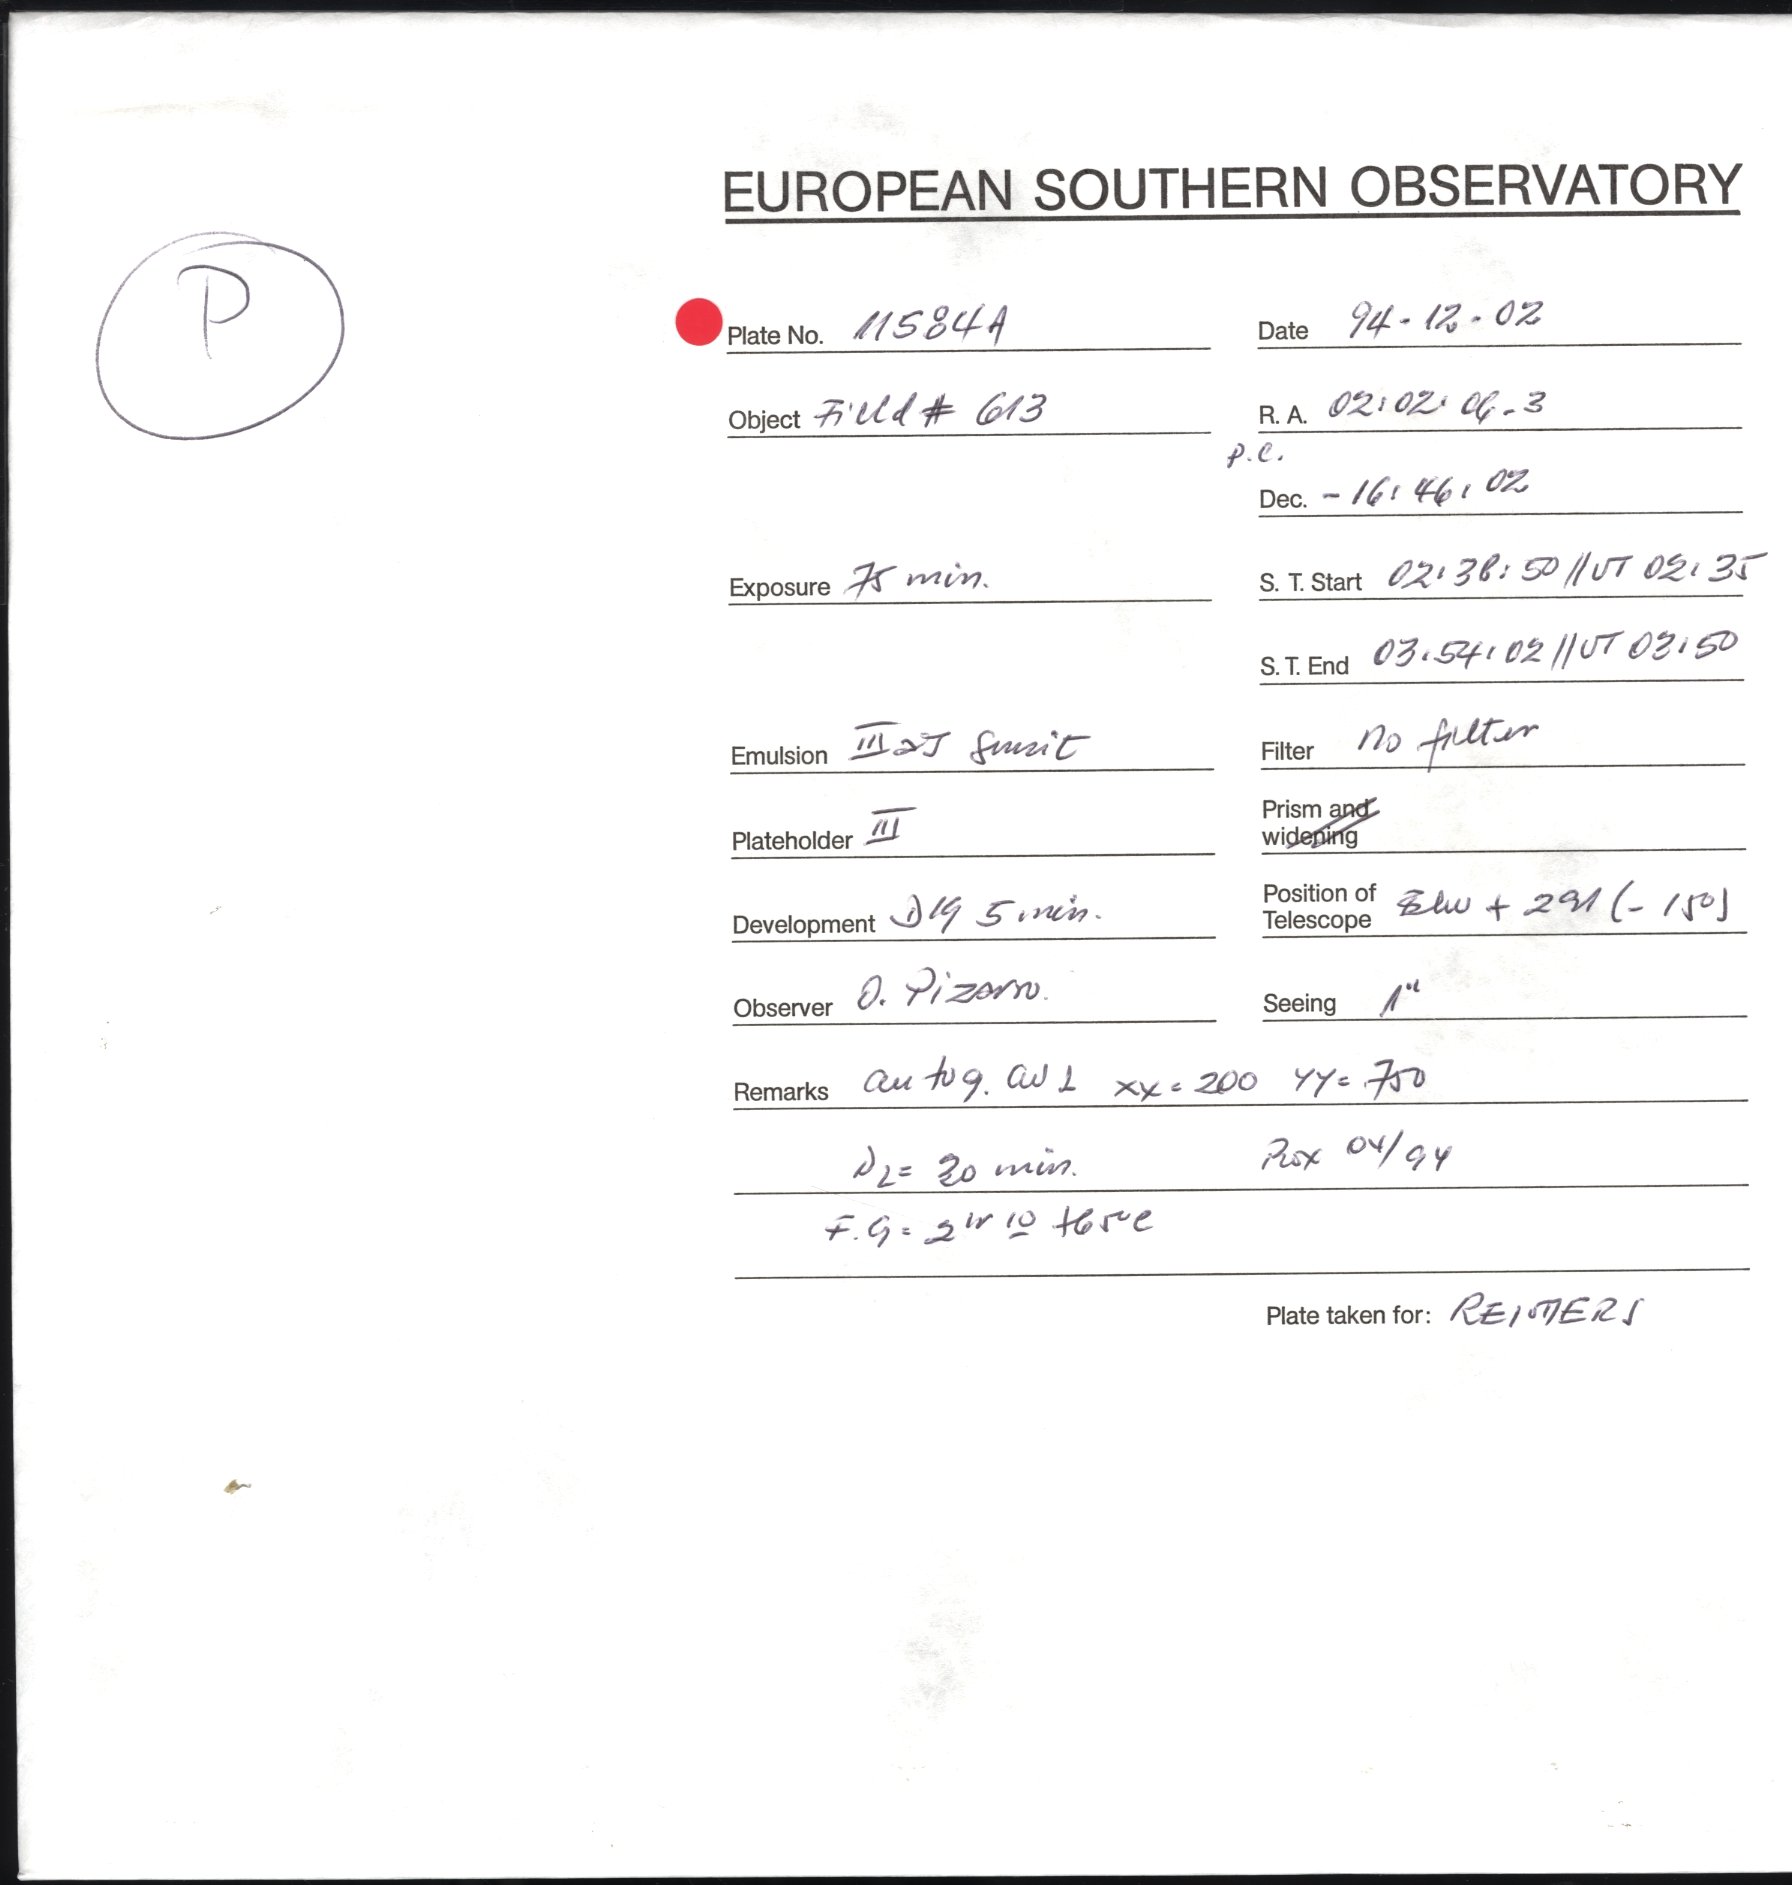 EUROPEAN SOUTHERN OBSERVATORY
P
Plate No. 11584A Date 94-12-02
Object Field # 613 R. A. 02:02:06.3
P.C.
Dec. -16:46:02
Exposure 75 min. S. T. Start 02:38:50 // UT 02:35
S. T. End 03:54:02 // UT 03:50
Emulsion III aJ Filter no filter
Plateholder III Prism and
widening
Development D19 5 min. Position of
Telescope + 291 (-150)
Observer O. Pizarro. Seeing 1"
Remarks autog. XX = 200 YY = 750
= 30 min. 04/94
F.G =
Plate taken for: REIMERS